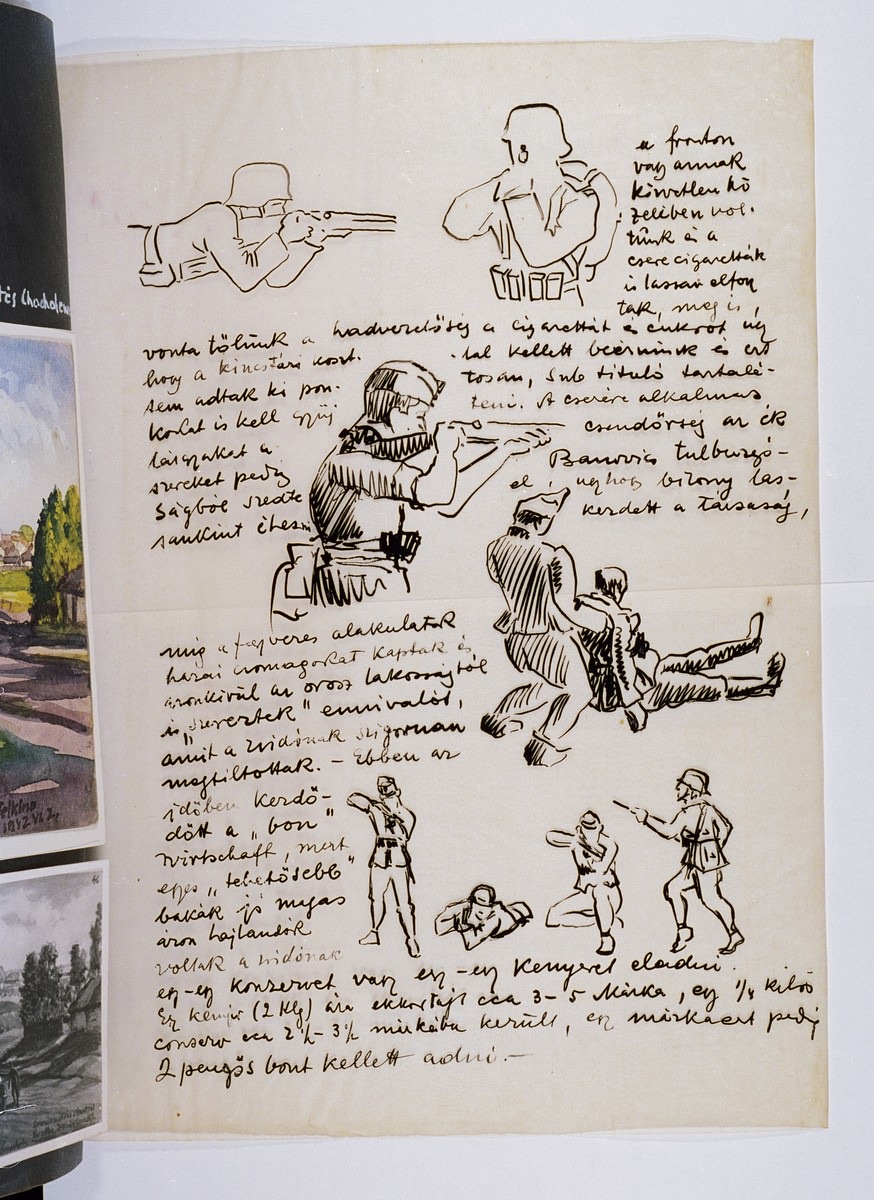 a fronton
vagy annak
közvetlen kö
zelében vol-
tünk és a
cserecigaretták
is lassan elfogy
tak, meg is
vonta tőlünk a hadvezetőség a cigarettát és cukrot úgy
hogy a kincstári koszt.
tal kellett beérnünk és ezt
sem adtak ki pon-
tosan, sub tituló tartalé-
korlat is kell gyűj
teni. A cserére alkalmas
tárgyakat a
csendőrség az ék
szereket pedig
Banovics tulbuzgó-
ságból szedte
el, úgyhogy bizony las-
sankint éhezni
kezdett a társaság,
míg a fegyveres alakulatok
hazai csomagokat kaptak és
azonkívül az orosz lakosságtól
is „szereztek" ennivalót,
amit a zsidónak szigoruan
megtiltottak. – Ebben az
időben kezdő-
dött a „bon"
wirtschaft, mert
egyes „tehetősebb"
bakák jó magas
áron hajlandók
voltak a zsidónak
egy-egy konzervet vagy egy-egy kenyeret eladni.
Egy kenyér (2 Klg) ára ekkortájt cca 3-5 Márka, egy 1/4 kilós
conserv cca 2 1/2 - 3 1/2 márkába került, egy márkáért pedig
2 pengős bont kellett adni. –
1942